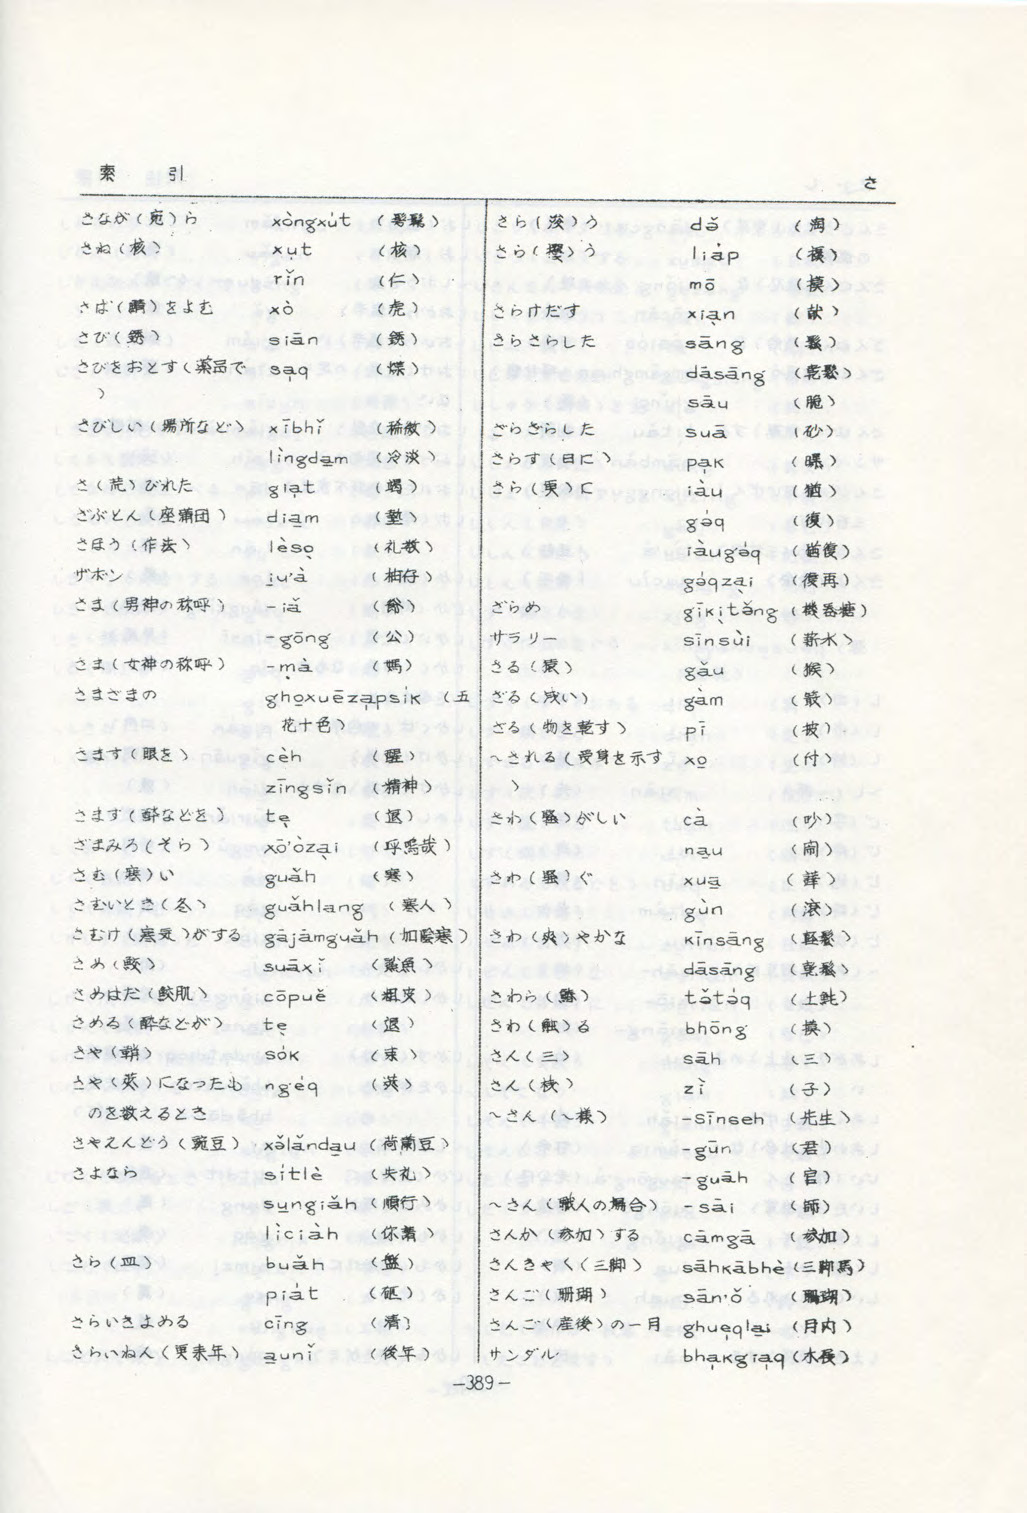 索 引
さ
さなが(宛)ら xòngxút (髣髴)
さね(核) xṳt (核)
rǐn (仁)
さば(鯖)をよむ xò (虎)
さび(銹) siān (銹)
さびをおとす(薬品で saq (煠)
)
さびしい(場所など) xībhǐ (稀微)
lìngdam (冷淡)
さ(荒)びれた giat
ざぶとん(座蒲団) diam (墊)
さほう(作法) lèso (礼数)
ザボン iu'à (柚仔)
さま(男神の称呼) -iǎ (爺)
-gōng (公)
さま(女神の称呼) -mà (媽)
さまざまの ghoxuēzapsik (五
花十色)
さます(眼を) cèh (醒)
zīngsǐn (精神)
さます(酔などを) te (退)
ざまみろ(そら) xō'òzai (呼嗚哉)
さむ(寒)い guǎh (寒)
さむいとき(冬) guǎhlang (寒人)
さむけ(寒気)がする gājāmguǎh (加陰寒)
さめ(鮫) suāxǐ (鯊魚)
さめはだ(鮫肌) cōpuě (粗皮)
さめる(酔などが) te (退)
さや(鞘) sók (束)
さや(莢)になったも ngéq (莢)
のを数えるとき
さやえんどう(豌豆) xǎlǎndau (荷蘭豆)
さよなら sitlè (失礼)
sungiǎh (順行)
lìciàh (你着)
さら(皿) buǎh (盤)
piát
さらいきよめる cīng (清)
さらいねん(更来年) aunǐ (後年)
さら(浚)う dǎ (淘)
さら(攫)う liáp
mō (摸)
さらけだす xian (献)
さらさらした sāng (鬆)
dāsāng (乾鬆)
sāu (脆)
ざらざらした suā (砂)
さらす(日に) pak (曝)
さら(更)に iàu (猶)
géq (復)
iàugéq (猶復)
géqzai (復再)
ざらめ gīkitǒng (機器糖)
サラリー sīnsùi (薪水)
さる(猿) gǎu (猴)
ざる(浅い) gàm
ざる(物を乾す) pī (披)
~される(受身を示す xo (付)
)
さわ(騒)がしい cà (吵)
nau (鬧)
さわ(騒)ぐ xua (譁)
gùn (滾)
さわ(爽)やかな kīnsāng (軽鬆)
dāsāng (乾鬆)
さわら(鰆) tǒtóq (土魠)
さわ(触)る bhōng (摸)
さん(三) sāh (三)
さん(桟) zì (子)
~さん(~様) -sīnseh (先生)
-gūn (君)
-guāh (官)
~さん(職人の場合) -sāi (師)
さんか(参加)する cāmgā (参加)
さんきゃく(三脚) sāhkābhè (三脚馬)
さんご(珊瑚) sān'ǒ (珊瑚)
さんご(産後)の一月 ghueqlai (月内)
サンダル bhakgiaq (木屐)
-389-